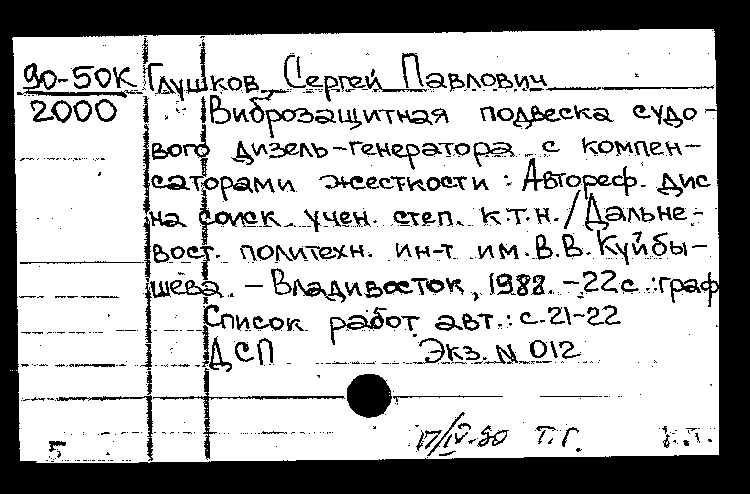 90-50К Глушков, Сергей Павлович
2000 Виброзащитная подвеска судо-
вого дизель-генератора с компен-
саторами жесткости: Автореф. дис
на соиск. учен. степ. к.т.н./Дальне-
вост. политехн. ин-т им. В.В. Куйбы-
шева. - Владивосток, 1988. - 22 с.: граф
Список работ авт.: с. 21-22
ДСП Экз. N 012
17/IV-80 Т.Г.
5